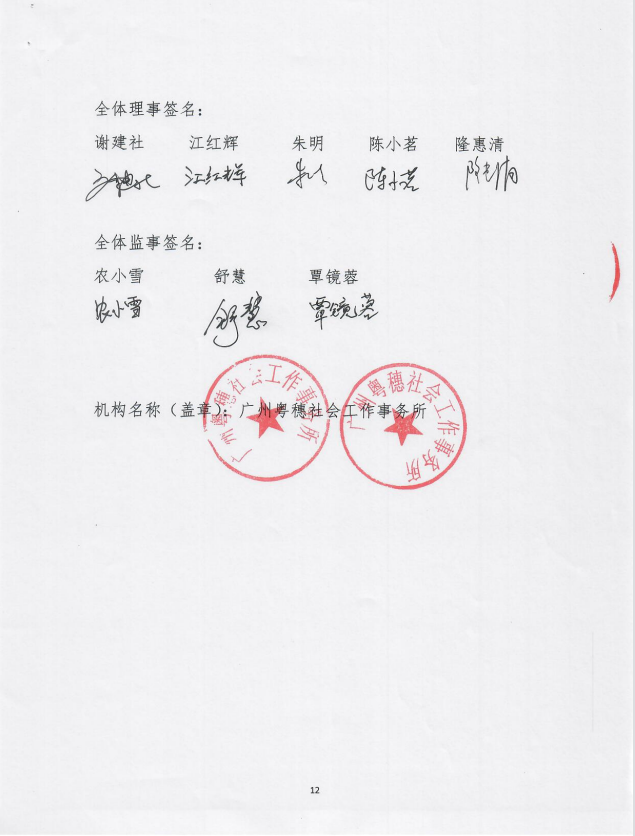 全体理事签名：
谢建社 江红辉 朱明 陈小茗 隆惠清
江红辉 陈小茗
全体监事签名：
农小雪 舒慧 覃镜蓉
农小雪 舒慧 覃镜蓉
广州粤穗社会工作事务所
广州粤穗社会工作事务所
机构名称（盖章）：广州粤穗社会工作事务所
12